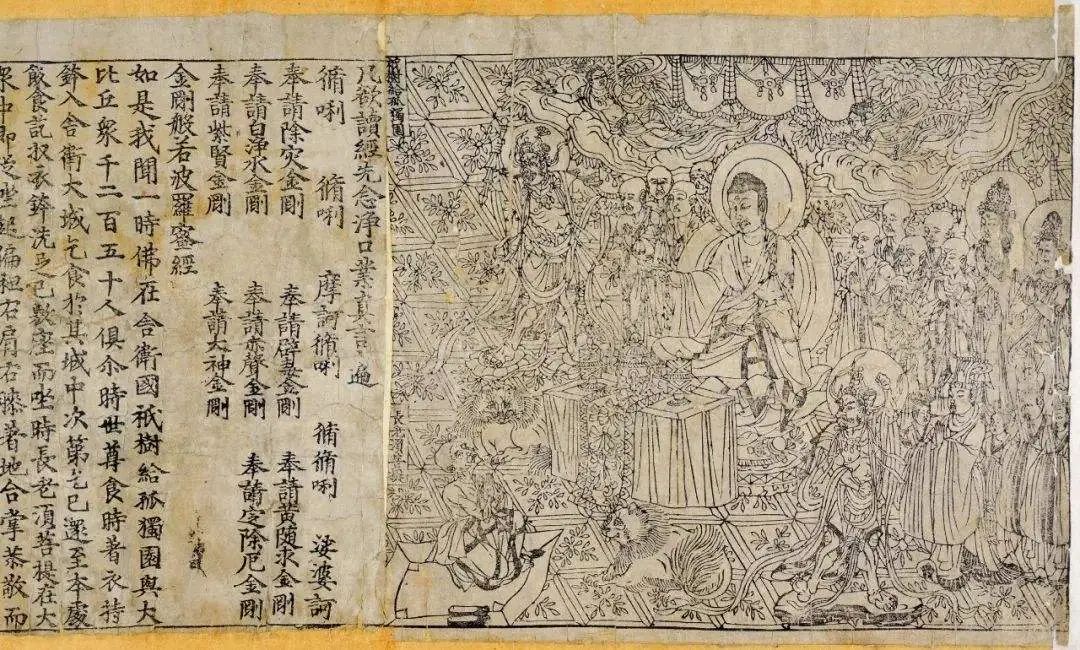 祇樹給孤獨園
長老須菩提
凡欲讀經先念淨口業真言一遍
脩唎 脩唎 摩訶脩唎 脩脩唎 娑婆訶
奉請除灾金剛 奉請辟毒金剛 奉請黄随求金剛
奉請白淨水金剛 奉請赤聲金剛 奉請定除厄金剛
奉請紫賢金剛 奉請大神金剛
金剛般若波羅蜜經
如是我聞一時佛在舍衛國祇樹給孤獨園與大
比丘衆千二百五十人俱尒時世尊食時著衣持
鉢入舍衛大城乞食於其城中次第乞已還至本處
飯食訖收衣鉢洗足已敷座而坐時長老須菩提在大
衆中即從座起偏袒右肩右膝著地合掌恭敬而